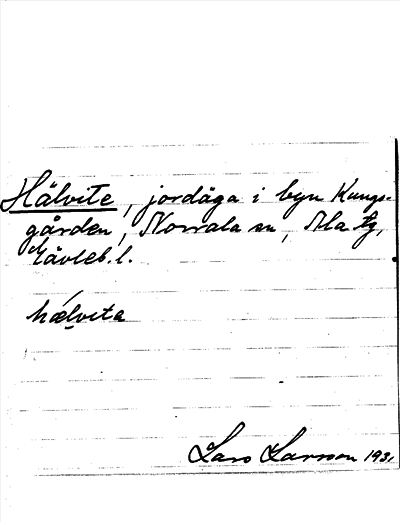 Hälvite, jordäga i byn Kungs-
gården, Norrala sn, Ala tg,
Gävleb. l.
hælvita
Lars Larsson 1931